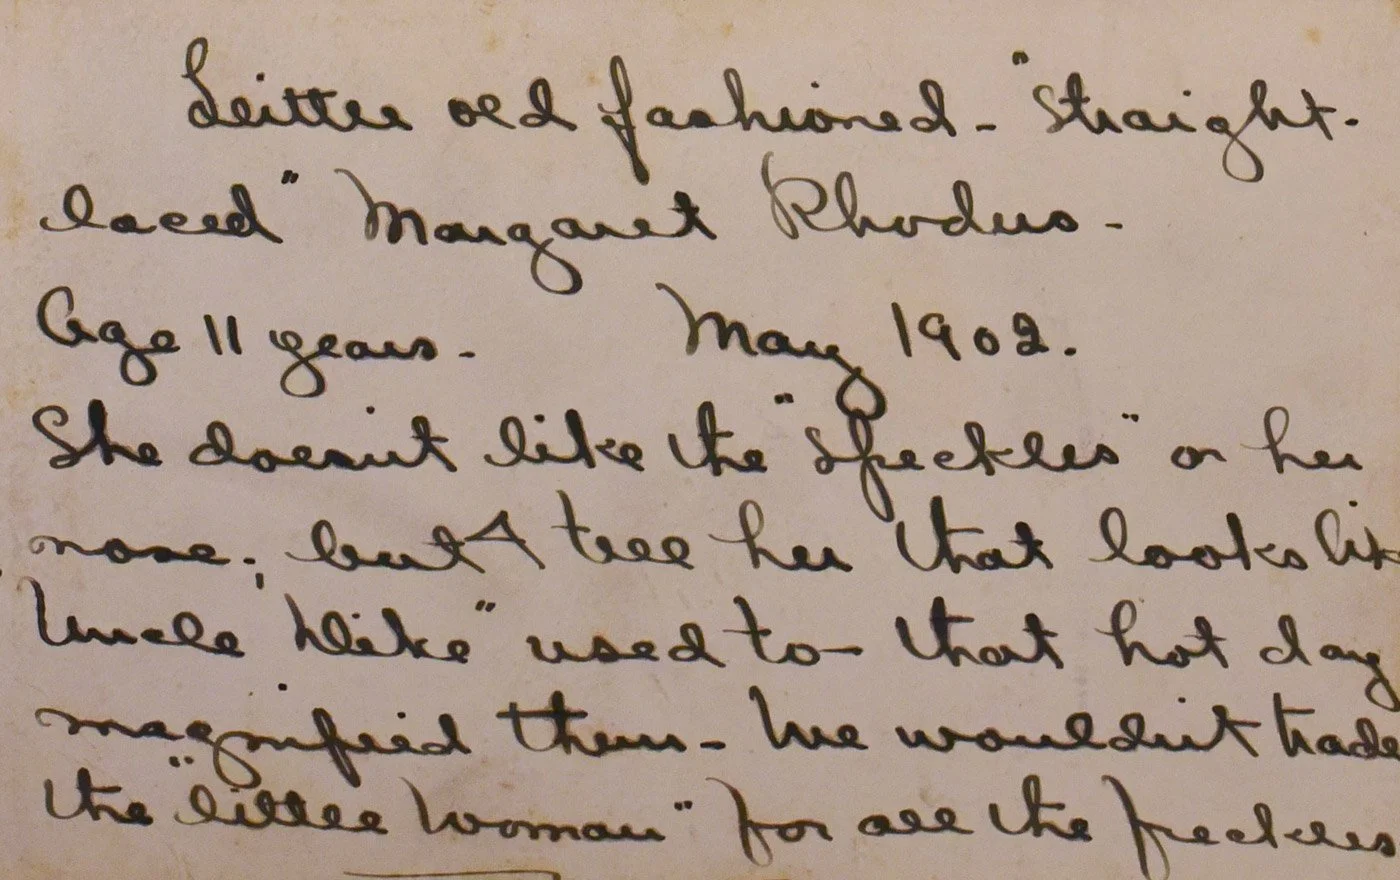 Little old fashioned - "Straight-
laced" Margaret Rhodus -
Age 11 years - May 1902.
She doesn't like the "speckles" on her
nose; but I tell her that looks lik
Uncle "Dike" used to - that hot day
magnified them - We wouldn't trade
the "little woman" for all the freckles